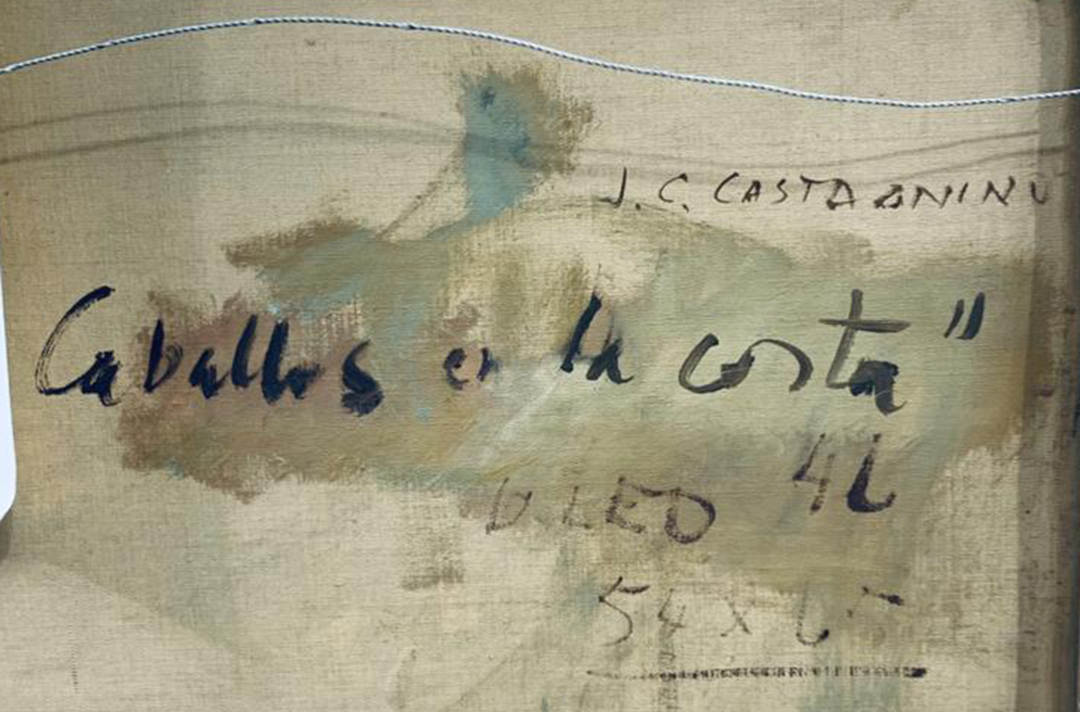 J.C. CASTAGNINO
Caballos en la costa"
OLEO 46
54 x 65